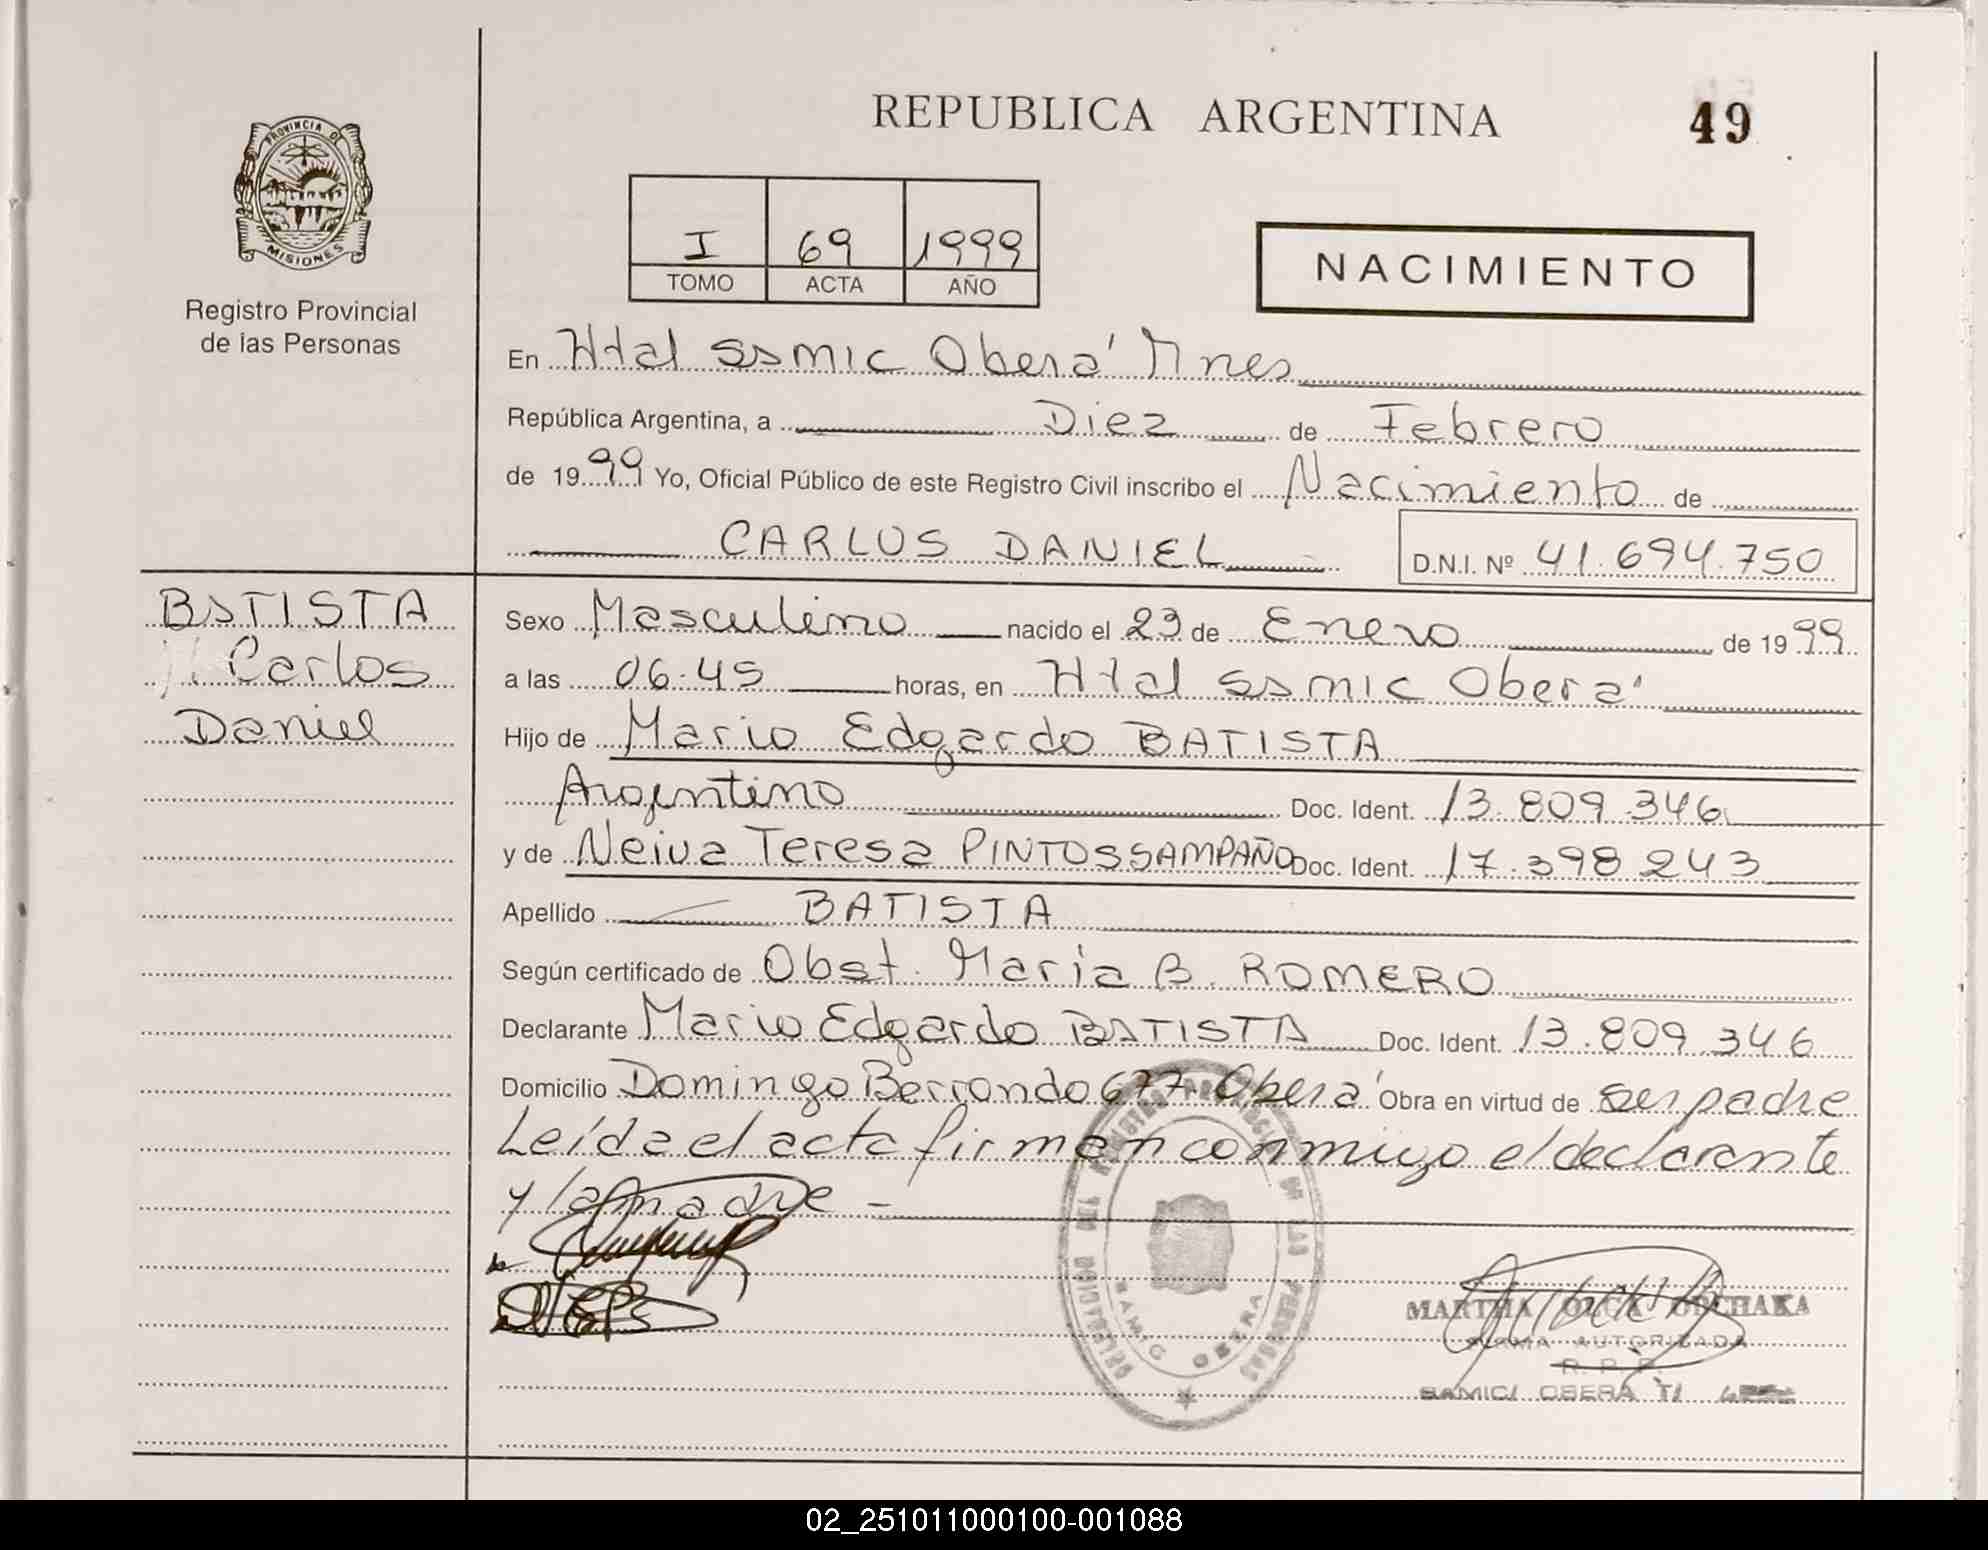 REPUBLICA ARGENTINA
49
PROVINCIA DE
MISIONES
Registro Provincial
de las Personas
I 69 1999
TOMO ACTA AÑO
NACIMIENTO
En Htal Ssmic Oberá Mnes
República Argentina, a Diez de Febrero
de 1999 Yo, Oficial Público de este Registro Civil inscribo el Nacimiento de
CARLOS DANIEL D.N.I. Nº 41.694.750
BATISTA
Carlos
Daniel
Sexo Masculino nacido el 23 de Enero de 1999
a las 06:45 horas, en Htal Ssmic Oberá
Hijo de Mario Edgardo BATISTA
Argentino Doc. Ident. 13.809.346
y de Neiva Teresa PINTOSSAMPAÑO Doc. Ident. 17.398.243
Apellido BATISTA
Según certificado de Obst. Maria B. ROMERO
Declarante Mario Edgardo BATISTA Doc. Ident. 13.809.346
Domicilio Domingo Berrondo 677 Oberá Obra en virtud de ser padre
Leída el acta firman conmigo el declarante
y la madre -
DELEGACION DEL REGISTRO PROVINCIAL DE LAS PERSONAS
SAMIC OBERA
MARTHA OLGA
FIRMA AUTORIZADA
R. P. P.
SAMIC/ OBERA
02_251011000100-001088